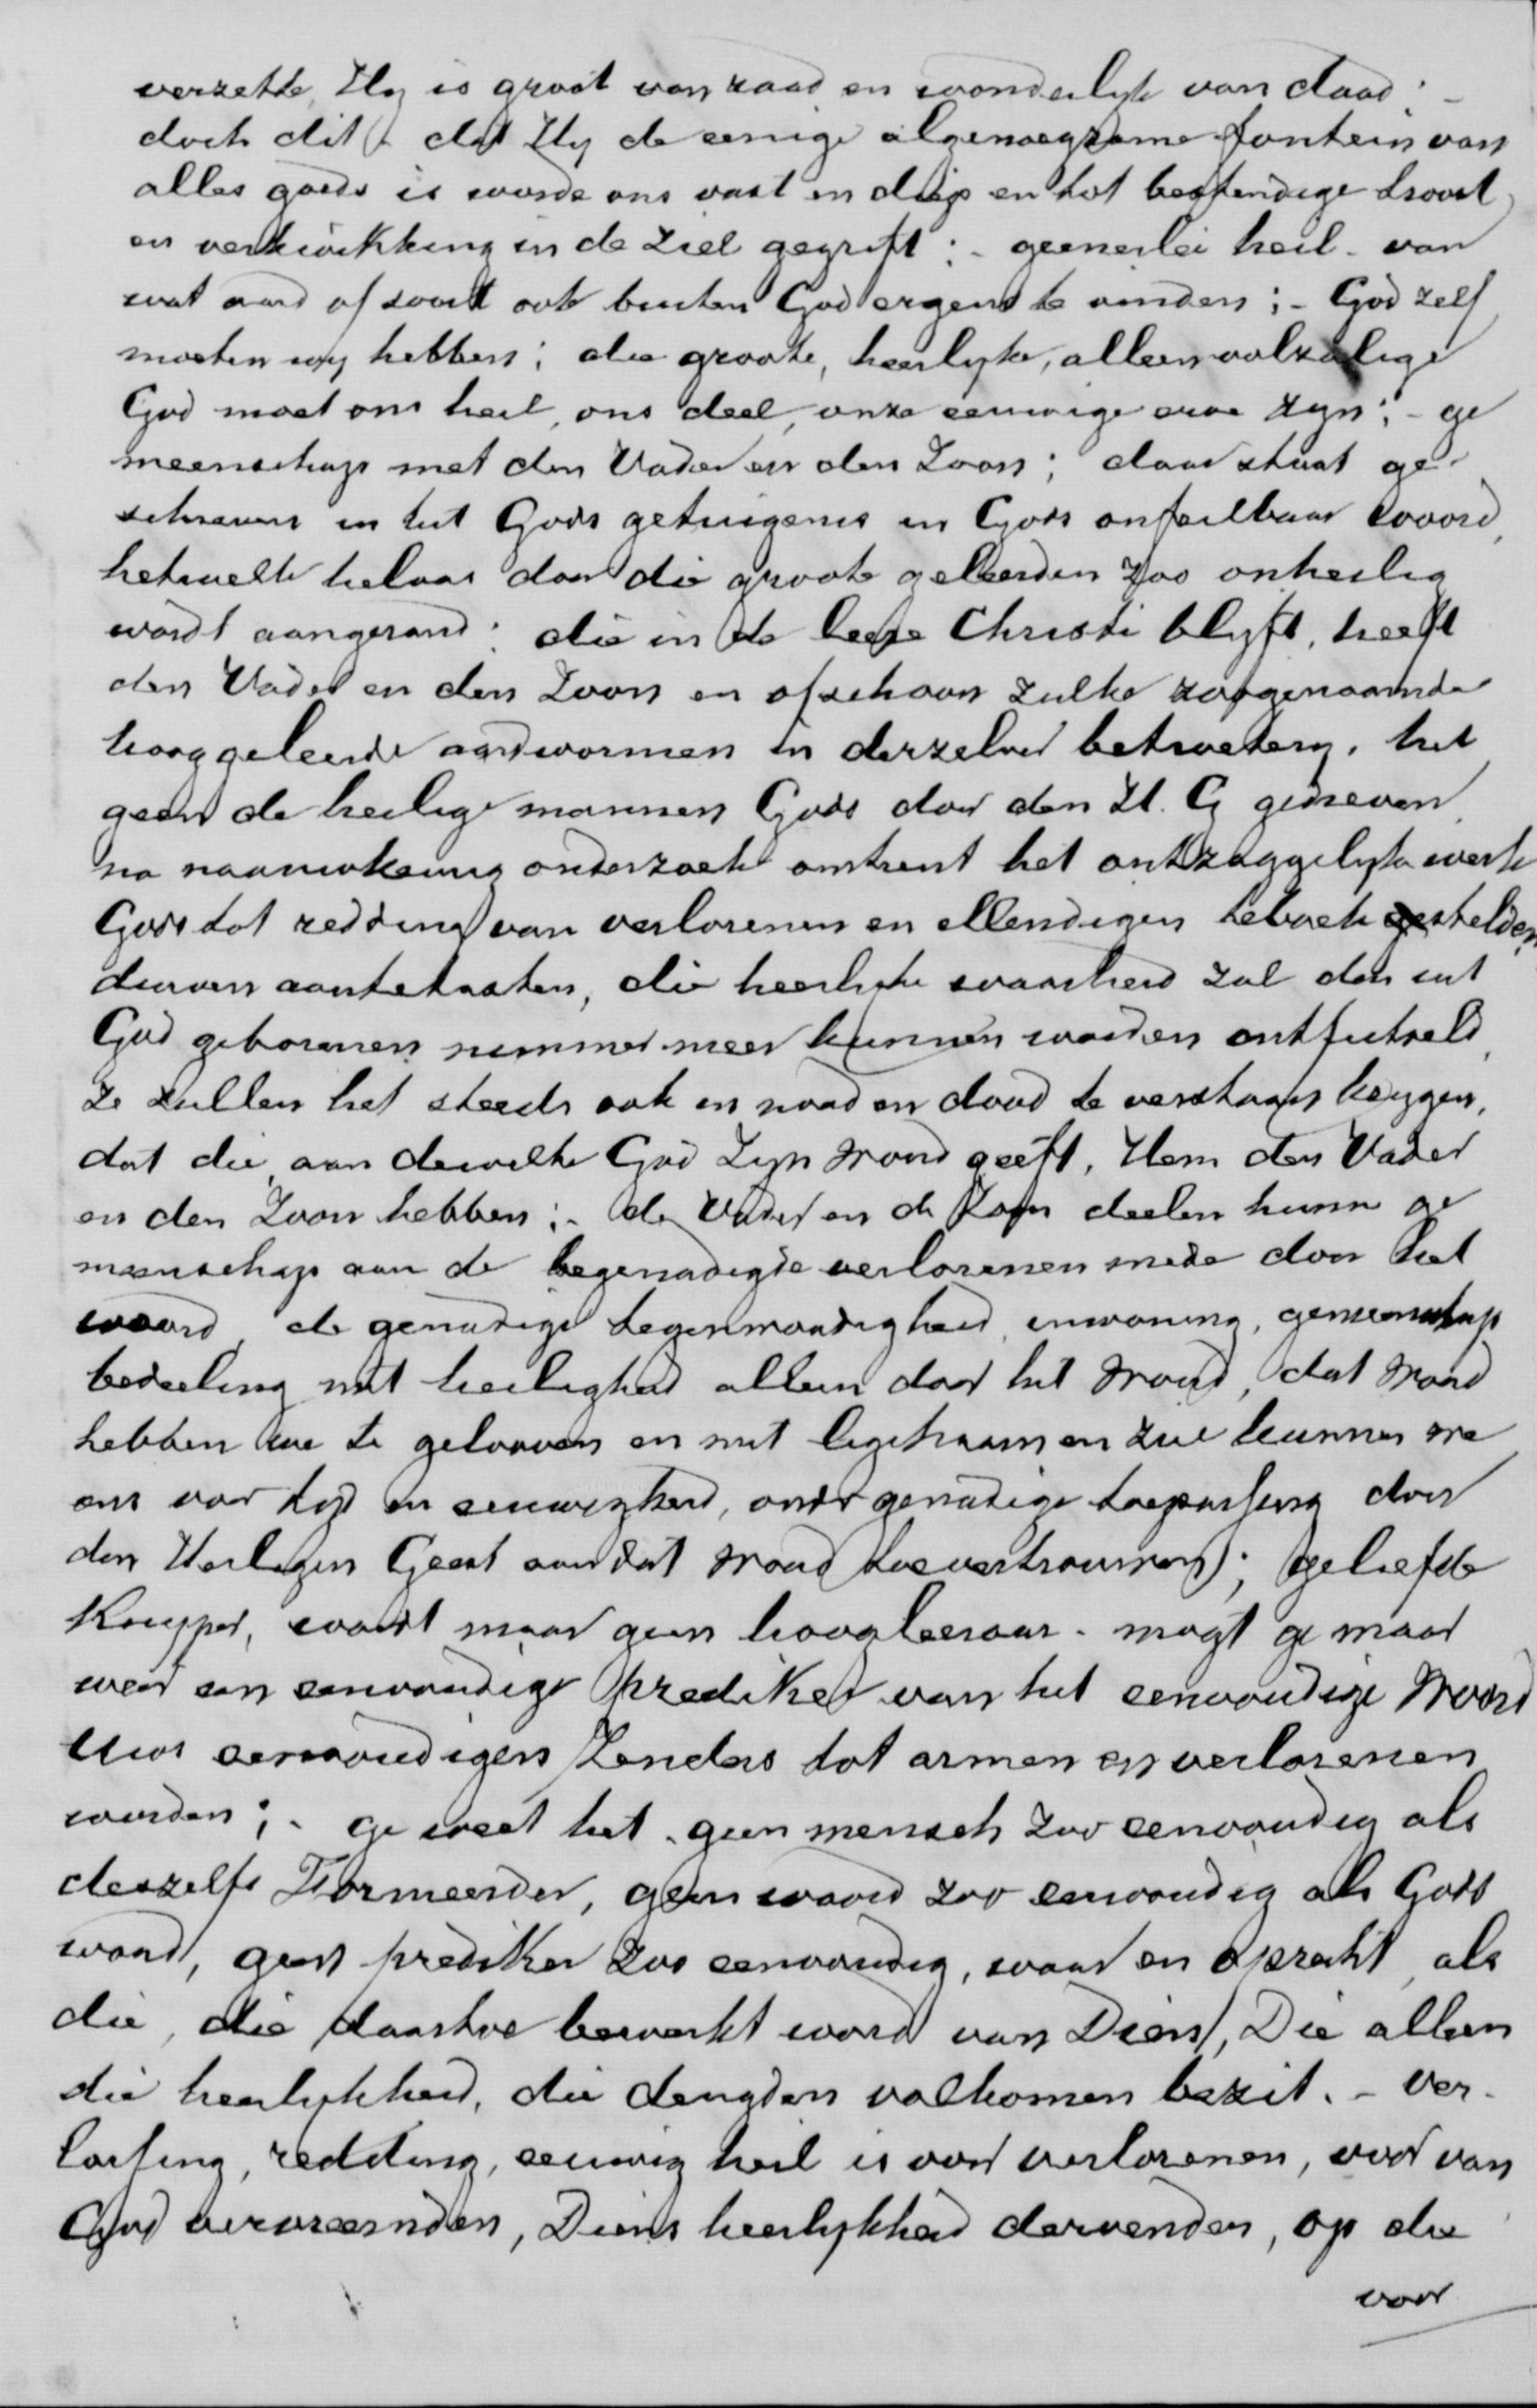 verzette, Hy is groot van raad en wonderlyk van daad; -
doch dit, dat Hy de eenige algenoegzame fontein van
alles goeds is worde ons vast en diep en tot bestendige troost
en verkwikking in de ziel gegrift; - geenerlei heil - van
wat aard of soort ook buiten God ergens te vinden; - God zelf
moeten wy hebben; die groote, heerlyke, alleenvolzalige
God moet ons heil, ons deel, onze eeuwige erve zyn; - ge
meenschap met den Vader en den Zoon; daar staat ge-
schreven in het Gods getuigenis in Gods onfeilbaar woord,
hetwelk helaas door die groote geleerden zoo onheilig
wordt aangerand: die in de leere Christi blyft, heeft
den Vader en den Zoon en ofschoon zulke zoogenaamde
hooggeleerde aardwormen in derzelver betweetery, het
geen de heilige mannen Gods door den H. G gedreven
na naauwkeurig onderzoek omtrent het ontzaggelyke werk
Gods tot redding van verlorenen en ellendigen teboek stelden,
durven aantetasten, die heerlyke waarheid zal den uit
God geborenen nimmermeer kunnen worden ontfutseld,
ze zullen het steeds ook in nood en dood te verstaan krygen,
dat die, aan dewelke God Zyn Woord geeft, Hem den Vader
en den Zoon hebben; - de Vader en de Zoon deelen hunne ge
meenschap aan de begenadigde verlorenen mede door het
woord, de genadige tegenwoordigheid, inwoning, gemeenschap
bedeeling met heiligheid alleen door het Woord, dat Woord
hebben we te gelooven en met ligchaam en ziel kunnen we
ons voor tyd en eeuwigheid, onder genadige toepassing door
den Heiligen Geest aan dat Woord toevertrouwen; geliefde
Kuyper, wordt maar geen hoogleeraar - mogt ge maar
weer een eenvoudige prediker van het eenvoudige Woord
Uws eenvoudigen Zenders tot armen en verlorenen
worden; - ge weet het - geen mensch zoo eenvoudig als
deszelfs Formeerder, geen woord zoo eenvoudig als Gods
woord, geen prediker zoo eenvoudig, waar en oprecht, als
die, die daartoe bewerkt word van Dien, Die alleen
die heerlykheid, die deugden volkomen bezit. - Ver-
lossing, redding, eeuwig heil is voor verlorenen, voor van
God vervreemden, Diens heerlykheid dervenden, op die
voor